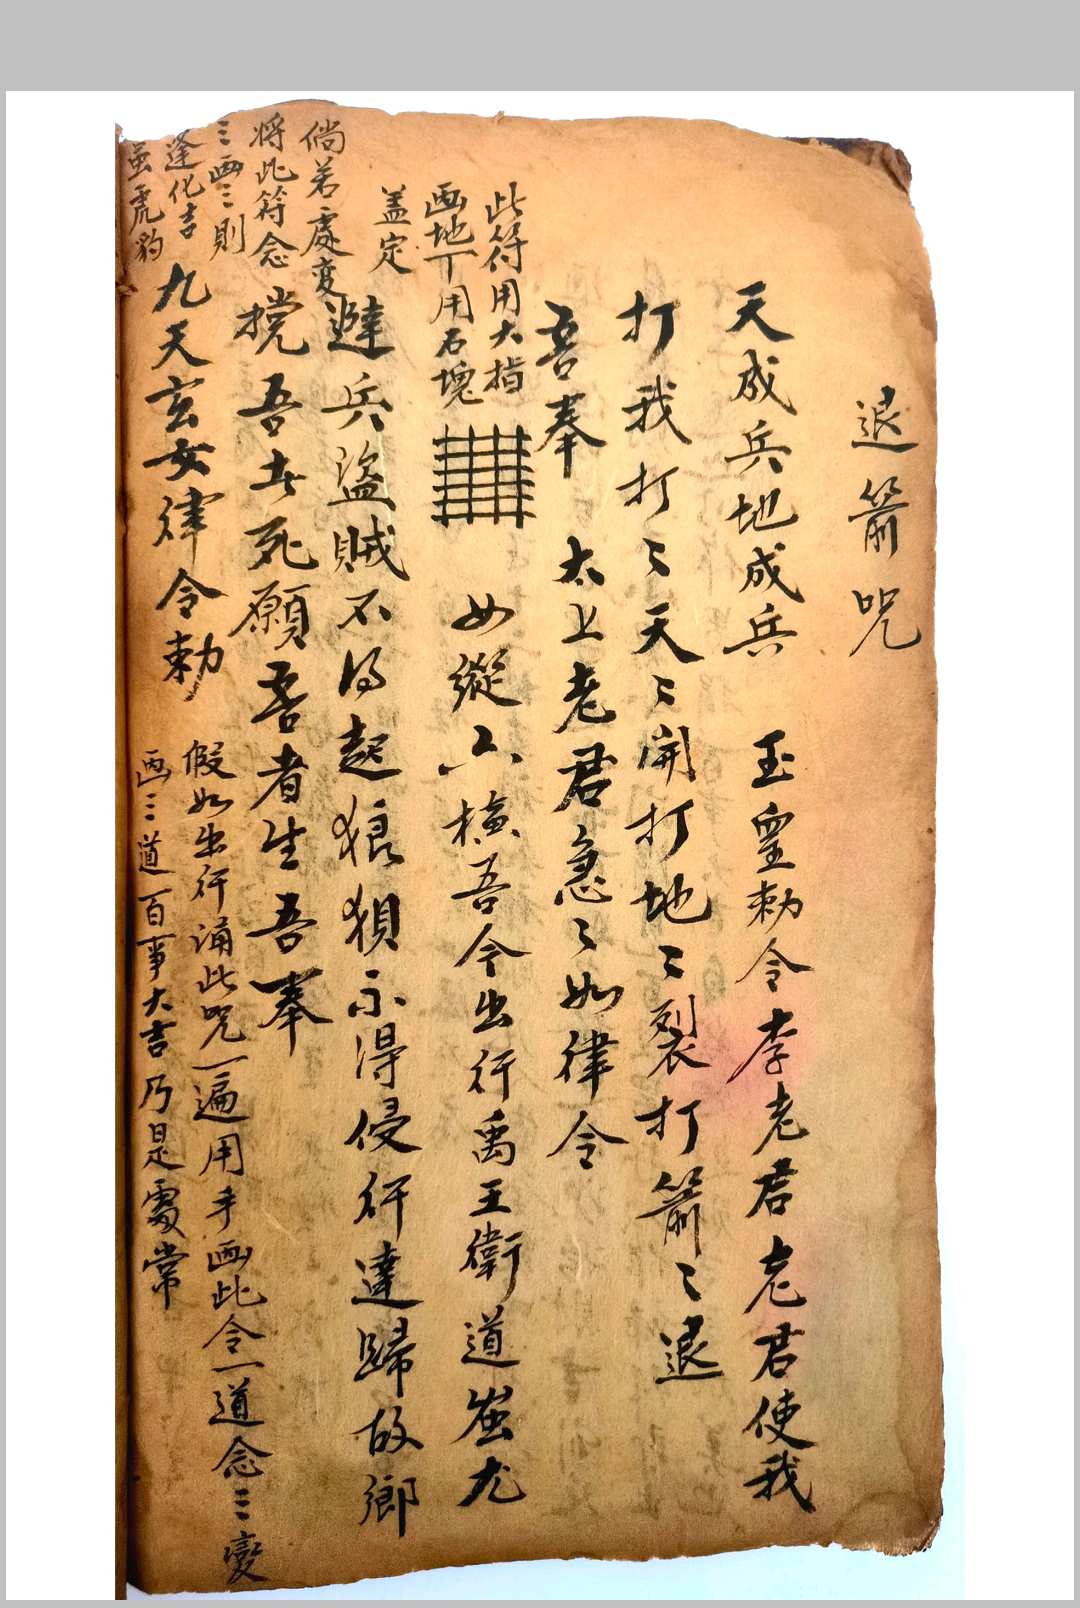 退箭咒
天成兵地成兵 玉皇勅令李老君老君使我
打我打〻天〻開打地〻裂打箭〻退
吾奉 太上老君急〻如律令
此符用大指
画地下用石塊
盖定
四縱六橫吾今出行禹王衛道蚩尤
避兵盜賊不得起狼狽不得侵行達歸故鄉
擋吾者死願吾者生吾奉
九天玄女律令勅
倘若處变
将此符念
三画三則
逢化吉
虎豹
假如出行誦此咒一遍用手画此令一道念三变
画三道百事大吉乃是處常